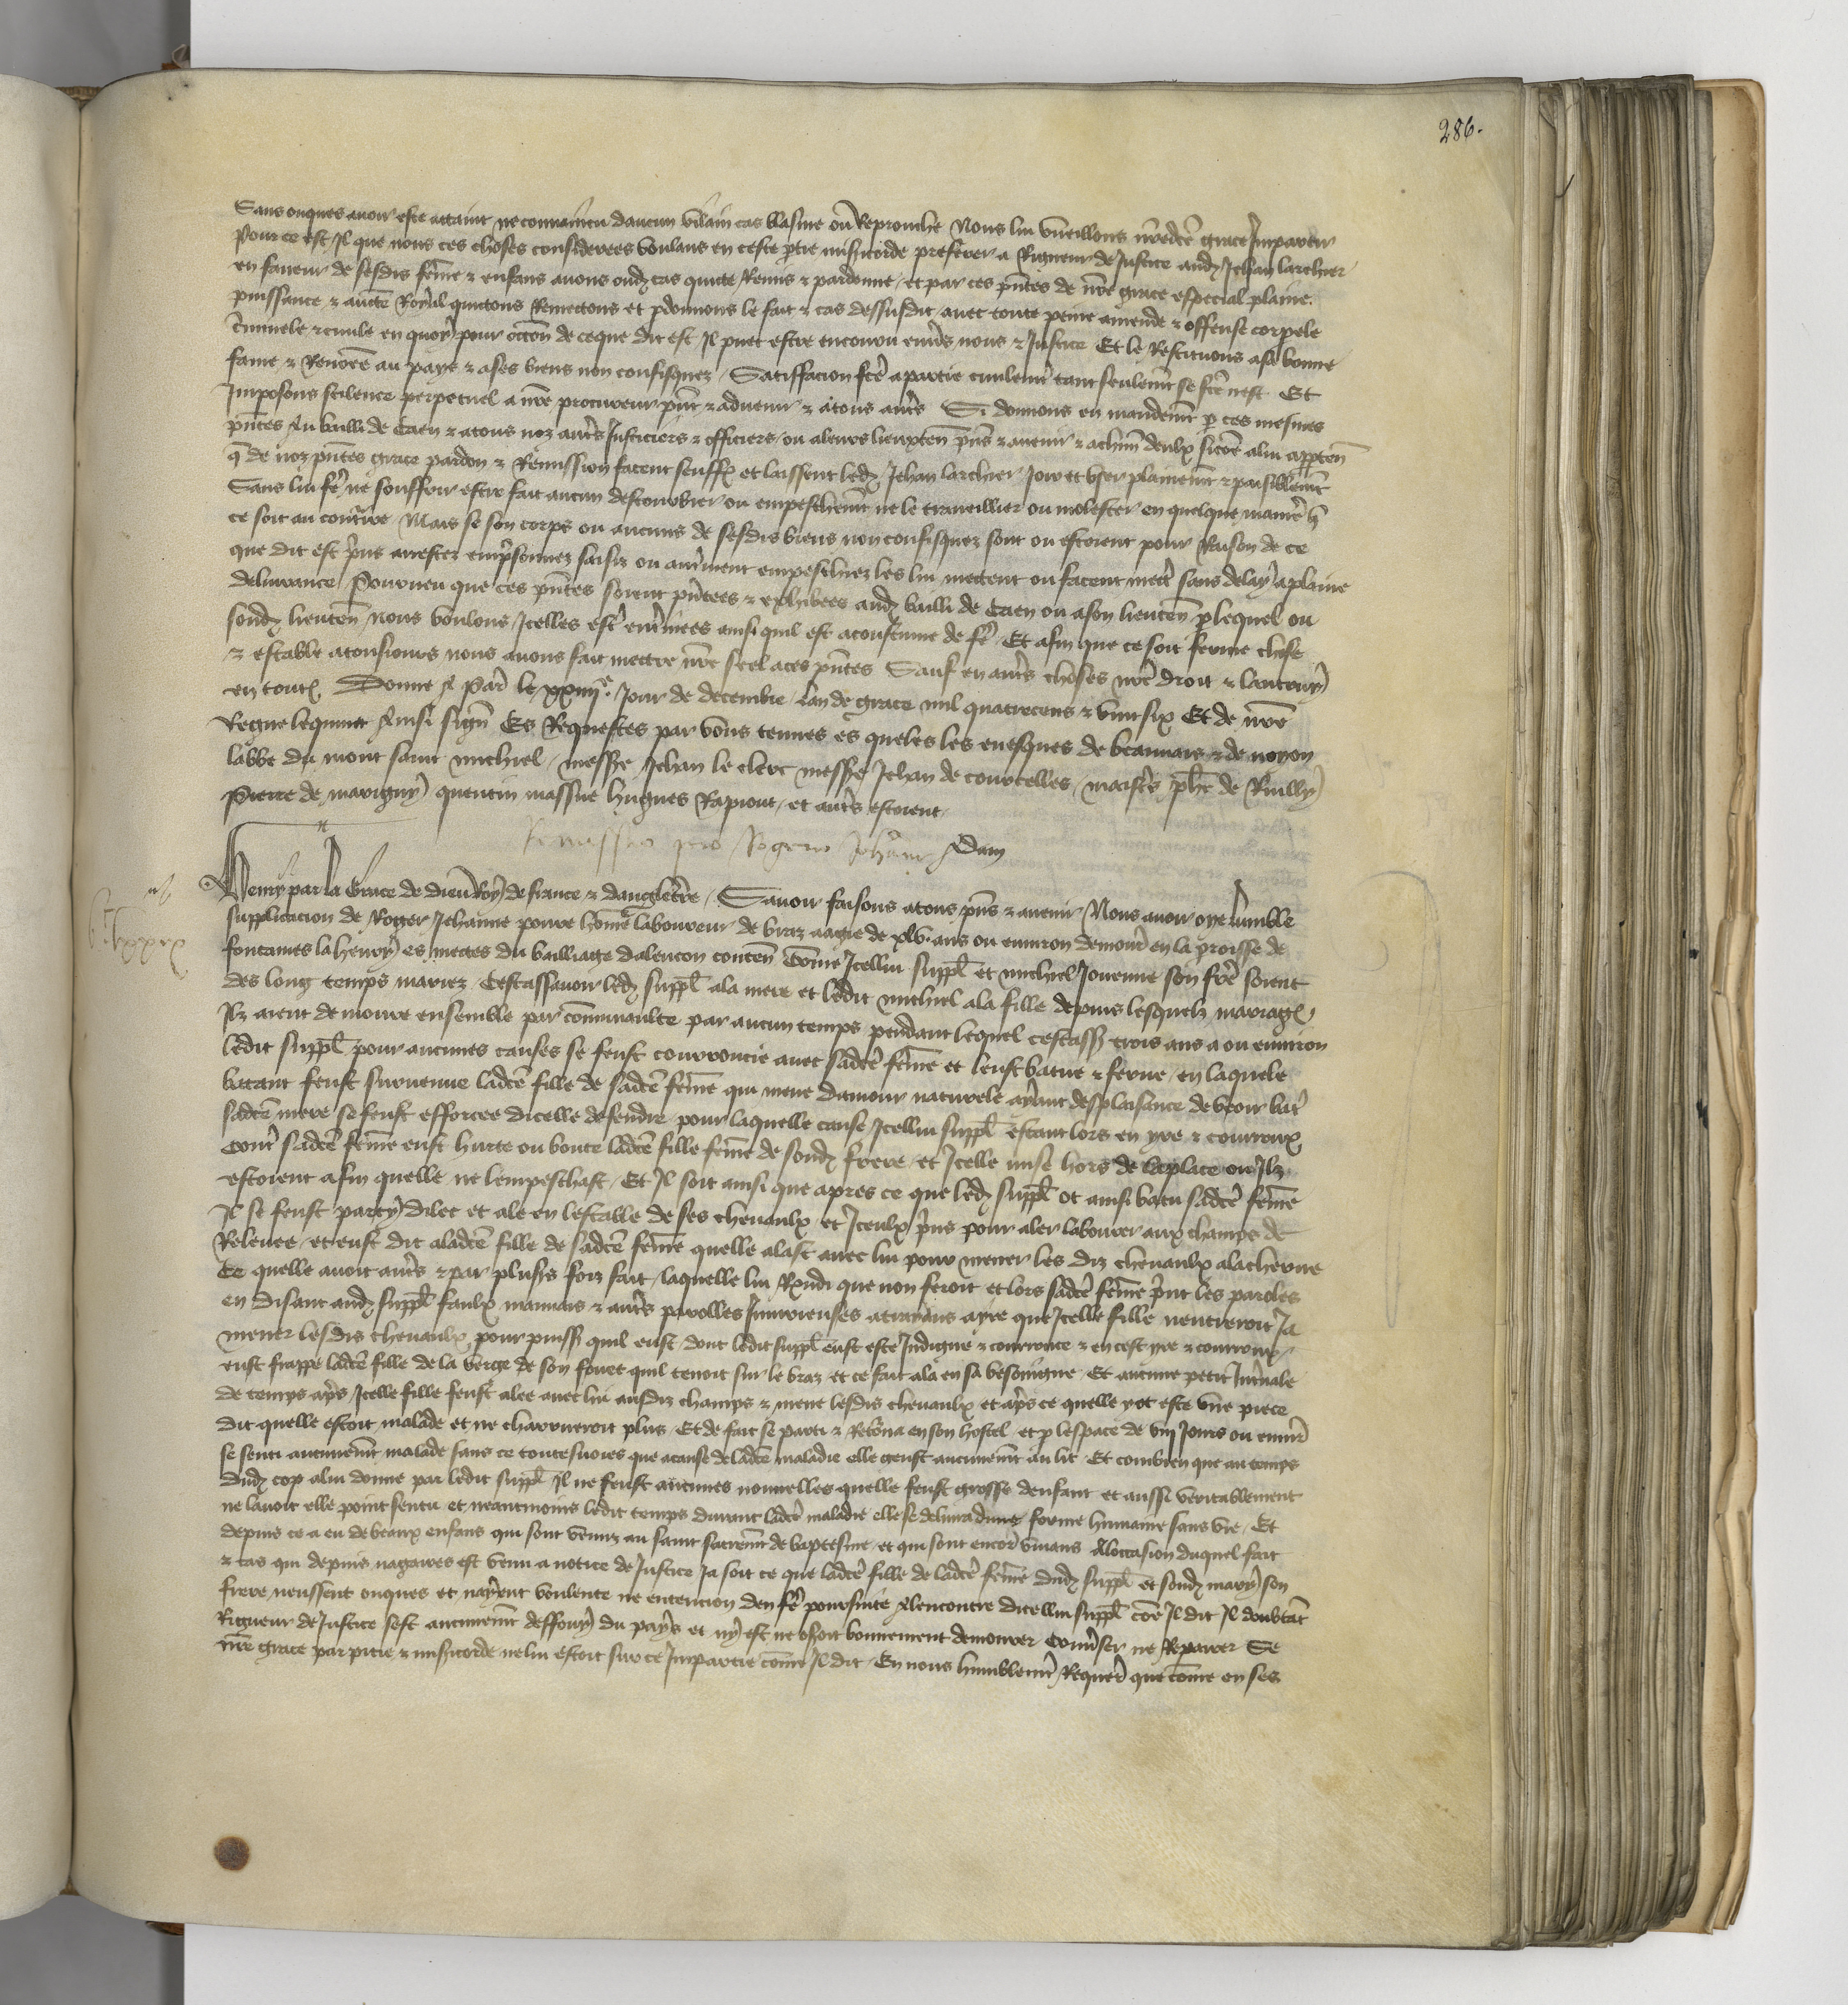 286.
Sans onques avoir este attaint ne convaincu daucun vilain cas blasme ou Reprouche Nous lui vueillons nredcte grace Impartir
Pour ce est Il que nous ces choses considerees voulans en ceste ptie misicorde preferer a Rigueur de Justice audz Jehan larchier
en faveur de sesdis feme & enfans avons oudz cas quicte Remis & pardonne et par ces pntes de nre grace especial plaine
puissance & aucte Royal quictons Remectons et pdonnons le fait & cas dessusdit avec toute peine amende & offense corpele
criminele & civile en quoy pour occon de ce que dit est Il puet estre encouru envs nous & Justice Et le Restituons a sa bonne
fame & Renomee au pays & a ses biens non confisquez Satisfacion fce a partie civilemt tant seulemt se fce nest Et
Imposons scilence perpetuel a nre procureur pnt & advenir & a tous auts Si donnons en mandemt p ces mesmes
pntes Au bailli de Caen & a tous noz auts Justiciers & officiers ou a leurs lieuxten pns & avenir & a chun deulx sicoe a lui appten
q de noz pntes grace pardon & Remission facent seuffr et laissent ledz Jehan larchier Joir et user plainemt & paisiblemt
Sans lui fe ne souffrir estre fait aucun destourbier ou empeschemt ne le traveillier ou molester en quelque maniere q
ce soit au contraire Mais se son corps ou aucuns de sesdis biens non confisquez sont ou estoient pour Raison de ce
que dit est pris arrestez emprisonnez saisiz ou autrement empeschez les lui mettent ou facent mett sans delay a plaine
delivrance Pourveu que ces pntes soient pntees & exhibees audz bailli de Caen ou a son lieuten p lequel ou
sondz lieuten nous voulons Icelles est enterinees ainsi quil est acoustume de fe Et afin que ce soit ferme chose
& estable a tousjours nous avons fait mettre nre seel a ces pntes Sauf en auts choses nre droit & lautruy
en toutes Donne A Paris le xxiiije Jour de decembre lan de grace mil quatrecens & vint six Et de nre
Regne le quint Ainsi signe Es Requestes par vous tenues es queles les evesques de beauvais & de noyon
labbe du mont saint michiel messre Jehan le clerc messre Jehan de courcelles maistrs phe de Ruilly
Pierre de marigny quentin massue hugues Rapiout et auts estoient
Remissio pro Rogero Jehanne Adam
Henry par la Grace de dieu Roy de france & dangleterre Savoir faisons a tous pns & avenir Nous avoir oye lumble
supplicacion de Roger Jehanne povre home laboureur de braz aagie de xlv ans ou environ demour en la proisse de
fontaines la henry es mettes du bailliage dalencon conten Come Icellui suppl et michiel Jouenne son frere soient
des long temps mariez Cestassavoir ledz suppl a la mere et ledit michiel a la fille depuis lesquelz mariages
Ilz aient demoure ensemble par communaulte par aucun temps pendant lequel cestass trois ans a ou environ
ledit suppl pour aucunes causes se feust courroucie avec sadce feme et leust batue & ferue en laquele
batant feust survenue ladce fille de sadce feme qui meue damour naturele ayant desplaisance de veoir bat
sadce mere se feust efforcee dicelle defendre pour laquelle cause Icellui suppl estant lors en yre & courroux
cont sadce feme eust hurte ou boute ladce fille feme de sondz frere et Icelle mise hors de la place ou Ilz
estoient afin quelle ne lempeschast Et Il soit ainsi que apres ce que ledz suppl ot ainsi batu sadce feme
Il se feust party dilec et ale en lestable de ses chevaulx et Iceulx pris pour aler labourer aux champs de
Relevee et eust dit a ladce fille de sadce feme quelle alast avec lui pour mener les diz chevaulx a la cherue
Ce quelle avoit auts & par plusrs foiz fait laquelle lui Respondi que non feroit et lors sadce feme print les paroles
en disant audz suppl faulx mauvais & auts parolles Injurieuses atraians a yre que Icelle fille nentreroit Ja
mener lesdis chevaulx pour puiss quil eust dont ledit suppl eust este Indigne & courrouce & en cest yre & courroux
eust frappe ladce fille de la verge de son fouet quil tenoit sur le braz et ce fait ala en sa besoingne Et aucune petit Intvale
de temps aps Icelle fille feust alee avec lui ausdiz champs & mene lesdis chevaulx et aps ce quelle yot este une piece
dit quelle estoit malade et ne charrueroit plus Et de fait se parti & Retourna en son hostel et p lespace de viij Jours ou envir
se senti aucunemt malade sans ce toutesvoies que a cause de ladce maladie elle geust aucunemt au lit Et combien que au temps
dudz cop a lui donne par ledit suppl Il ne feust aucunes nouvelles quelle feust grosse denfant et aussi veritablement
ne lavoit elle point sentu et neantmoins ledit temps durant ladce maladie elle se delivra dune forme humaine sans vie Et
depuis ce a eu de beaux enfans qui sont venuz au saint sacremt de baptesme et qui sont encor vivans A loccasion duquel fait
& cas qui depuis nagaires est venu a notice de Justice Ja soit ce que ladce fille de ladce feme dudz suppl et sondz mary son
frere neussent onques et nayent voulente ne entencion den fe poursuite A lencontre dicellui suppl coe Il dit Il doubtat
Rigueur de Justice sest aucunemt deffouy du pays et ny est ne oseroit bonnement demourer Converser ne Reparer Se
nre grace par pitie & misicorde ne lui estoit sur ce Impartie come Il dit En nous humblemt Requerat que come en ses